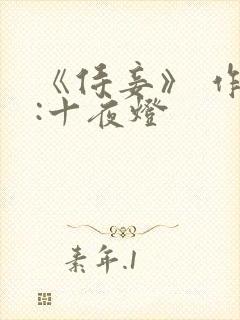 《侍妾》 作
:十夜燈
素年.1